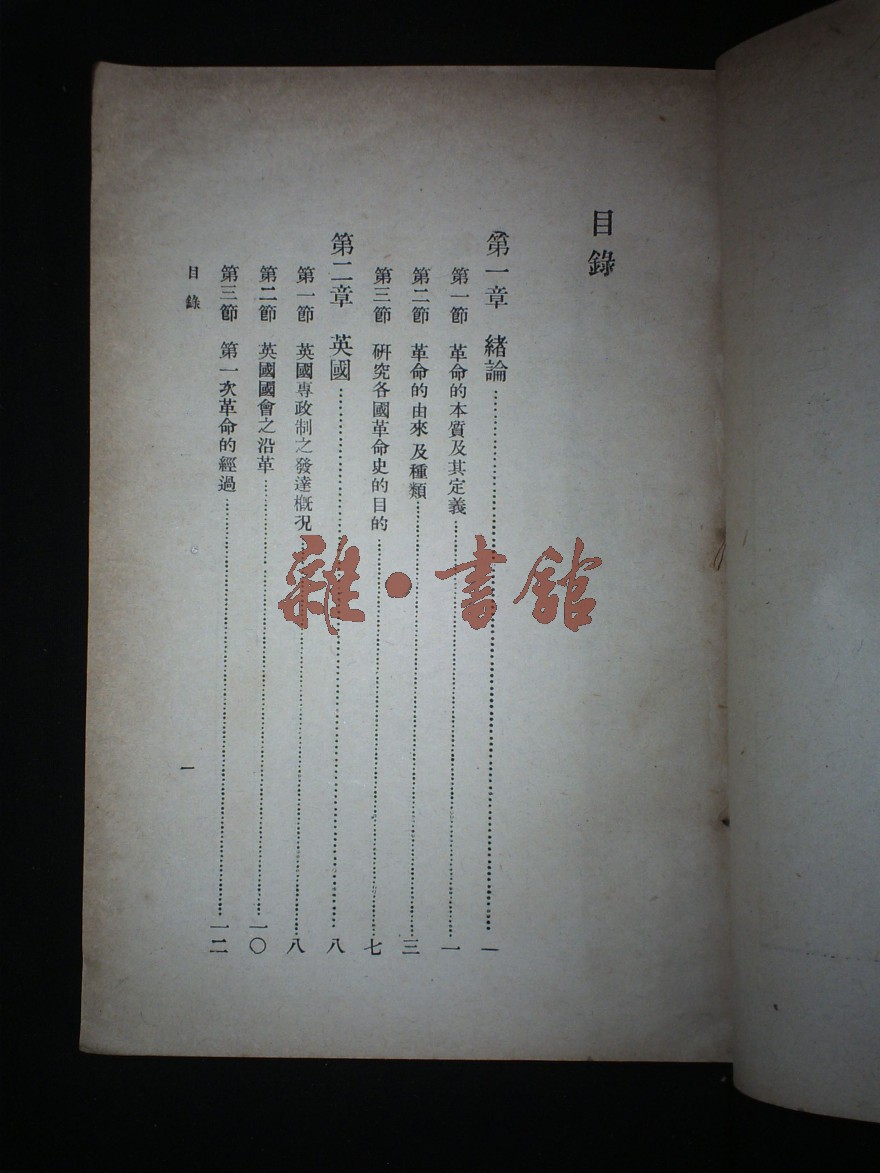 目錄
第一章 緒論……一
第一節 革命的本質及其定義……一
第二節 革命的由來及種類……三
第三節 研究各國革命史的目的……七
第二章 英國……八
第一節 英國專政制之發達概況……八
第二節 英國國會之沿革……一〇
第三節 第一次革命的經過……一二
目錄
一
雜·書館